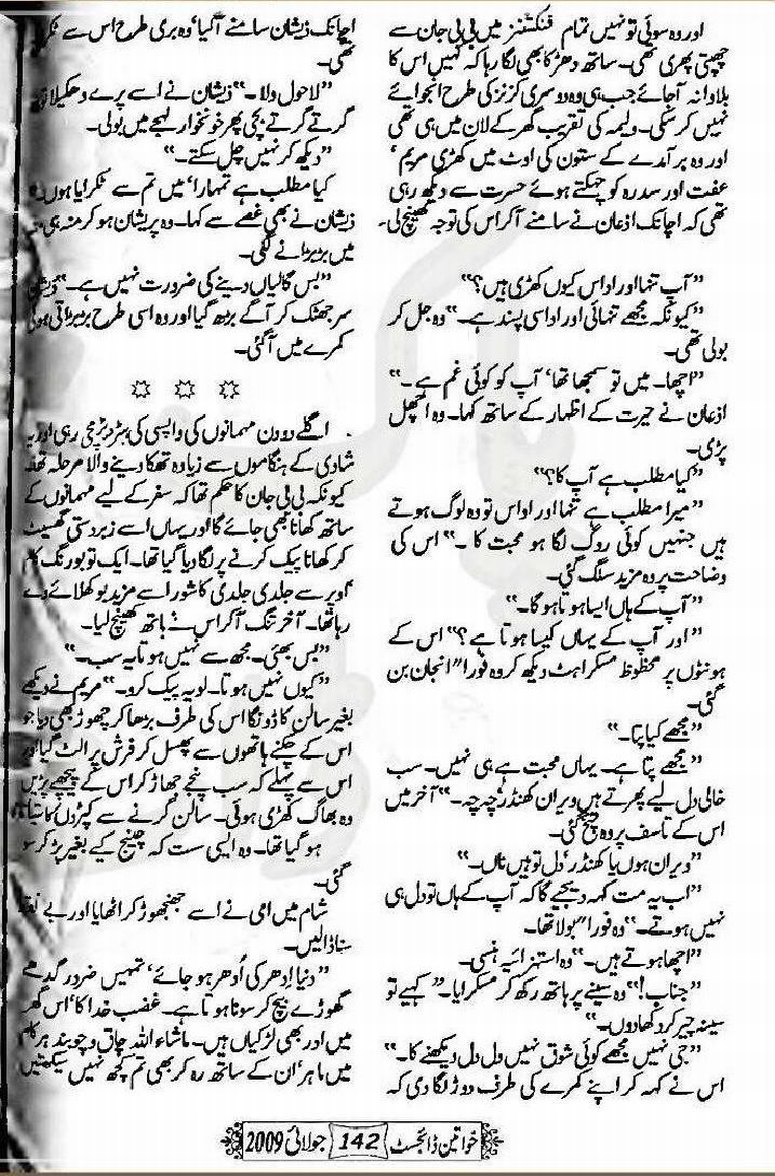 اور وہ سوئی تو نہیں تمام فنکشنز میں بی بی جان سے
چھپتی پھری تھی۔ ساتھ دھڑکا بھی لگا رہا کہ کہیں اس کا
بلاوا نہ آجائے جب ہی وہ دوسری کزنز کی طرح انجوائے
نہیں کر سکی۔ ولیمہ کی تقریب گھر کے لان میں ہی تھی
اور وہ برآمدے کے ستون کی اوٹ میں کھڑی مریم،
عفت اور سدرہ کو چہکتے ہوئے حسرت سے دیکھ رہی
تھی کہ اچانک اذعان نے سامنے آکر اس کی توجہ کھینچ لی۔
”آپ تنہا اور اداس کیوں کھڑی ہیں؟“
”کیونکہ مجھے تنہائی اور اداسی پسند ہے۔“ وہ جل کر
بولی تھی۔
”اچھا۔ میں تو سمجھا تھا، آپ کو کوئی غم ہے۔“
اذعان نے حیرت کے اظہار کے ساتھ کہا۔ وہ اچھل
پڑی۔
”کیا مطلب ہے آپ کا؟“
”میرا مطلب ہے تنہا اور اداس تو وہ لوگ ہوتے
ہیں جنہیں کوئی روگ لگا ہو محبت کا۔“ اس کی
وضاحت پر وہ مزید سلگ گئی۔
”آپ کے ہاں ایسا ہوتا ہوگا۔“
”اور آپ کے یہاں کیسا ہوتا ہے؟“ اس کے
ہونٹوں پر محظوظ مسکراہٹ دیکھ کر وہ فوراً انجان بن
گئی۔
”مجھے کیا پتا۔“
”مجھے پتا ہے۔ یہاں محبت ہے ہی نہیں۔ سب
خالی دل لیے پھرتے ہیں ویران کھنڈر، چہ چہ۔“ آخر میں
اس کے تاسف پر وہ چیخ گئی۔
”ویران ہوں یا کھنڈر، دل تو ہیں ناں۔“
”اب یہ مت کہہ دیجیے گا کہ آپ کے ہاں تو دل ہی
نہیں ہوتے۔“ وہ فوراً بولا تھا۔
”اچھا ہوتے ہیں۔“ وہ استہزائیہ ہنسی۔
”جناب!“ وہ سینے پر ہاتھ رکھ کر مسکرایا۔ ”کہیے تو
سینہ چیر کر دکھادوں۔“
”جی نہیں مجھے کوئی شوق نہیں دل ول دیکھنے کا۔“
اس نے کہہ کر اپنے کمرے کی طرف دوڑ لگا دی کہ
اچانک ذیشان سامنے آگیا، وہ بری طرح اس سے
تھی۔
”لاحول ولا۔“ ذیشان نے اسے پرے دھکیلا
گرتے گرتے بچی پھر خونخوار لہجے میں بولی۔
”دیکھ کر نہیں چل سکتے۔“
کیا مطلب ہے تمہارا، میں تم سے ٹکرایا ہوں۔
ذیشان نے بھی غصے سے کہا۔ وہ پریشان ہو کر منہ ہی
میں بڑبڑانے لگی۔
”بس گالیاں دینے کی ضرورت نہیں ہے۔“ ذیشان
سر جھٹک کر آگے بڑھ گیا اور وہ اسی طرح بڑبڑاتی ہوئی
کمرے میں آگئی۔
اگلے دو دن مہمانوں کی واپسی کی ہڑبڑ مچی رہی اور یہ
شادی کے ہنگاموں سے زیادہ تھکا دینے والا مرحلہ تھا۔
کیونکہ بی بی جان کا حکم تھا کہ سفر کے لیے مہمانوں کے
ساتھ کھانا بھی جائے گا اور یہاں اسے زبردستی گھسیٹ
کر کھانا پیک کرنے پر لگا دیا گیا تھا۔ ایک تو بورنگ کام
اوپر سے جلدی جلدی کا شور اسے مزید بوکھلائے دے
رہا تھا۔ آخر تنگ آکر اس نے ہاتھ کھینچ لیا۔
”بس بھئی۔ مجھ سے نہیں ہوتا یہ سب۔“
”کیوں نہیں ہوتا۔ لو یہ پیک کرو۔“ مریم نے دیکھے
بغیر سالن کا ڈونگا اس کی طرف بڑھا کر چھوڑ بھی دیا جو
اس کے چکنے ہاتھوں سے پھسل کر فرش پر الٹ گیا اور
اس سے پہلے کہ سب پنجے جھاڑ کر اس کے پیچھے پڑیں
وہ بھاگ کھڑی ہوئی۔ سالن گرنے سے کپڑوں کا ستیاناس
ہو گیا تھا۔ وہ ایسی سست کہ چینج کیے بغیر پڑ کر سو
گئی۔
شام میں امی نے اسے جھنجھوڑ کر اٹھایا اور بے نقط
سنا ڈالیں۔
”دنیا ادھر کی اُدھر ہو جائے، تمہیں ضرور گدھے
گھوڑے بیچ کر سونا ہوتا ہے۔ غضب خدا کا، اس گھر
میں اور بھی لڑکیاں ہیں۔ ماشاء اللہ چاق و چوبند ہر کام
میں ماہر، ان کے ساتھ رہ کر بھی تم کچھ نہیں سیکھتیں
خواتین ڈائجسٹ 142 جولائی 2009